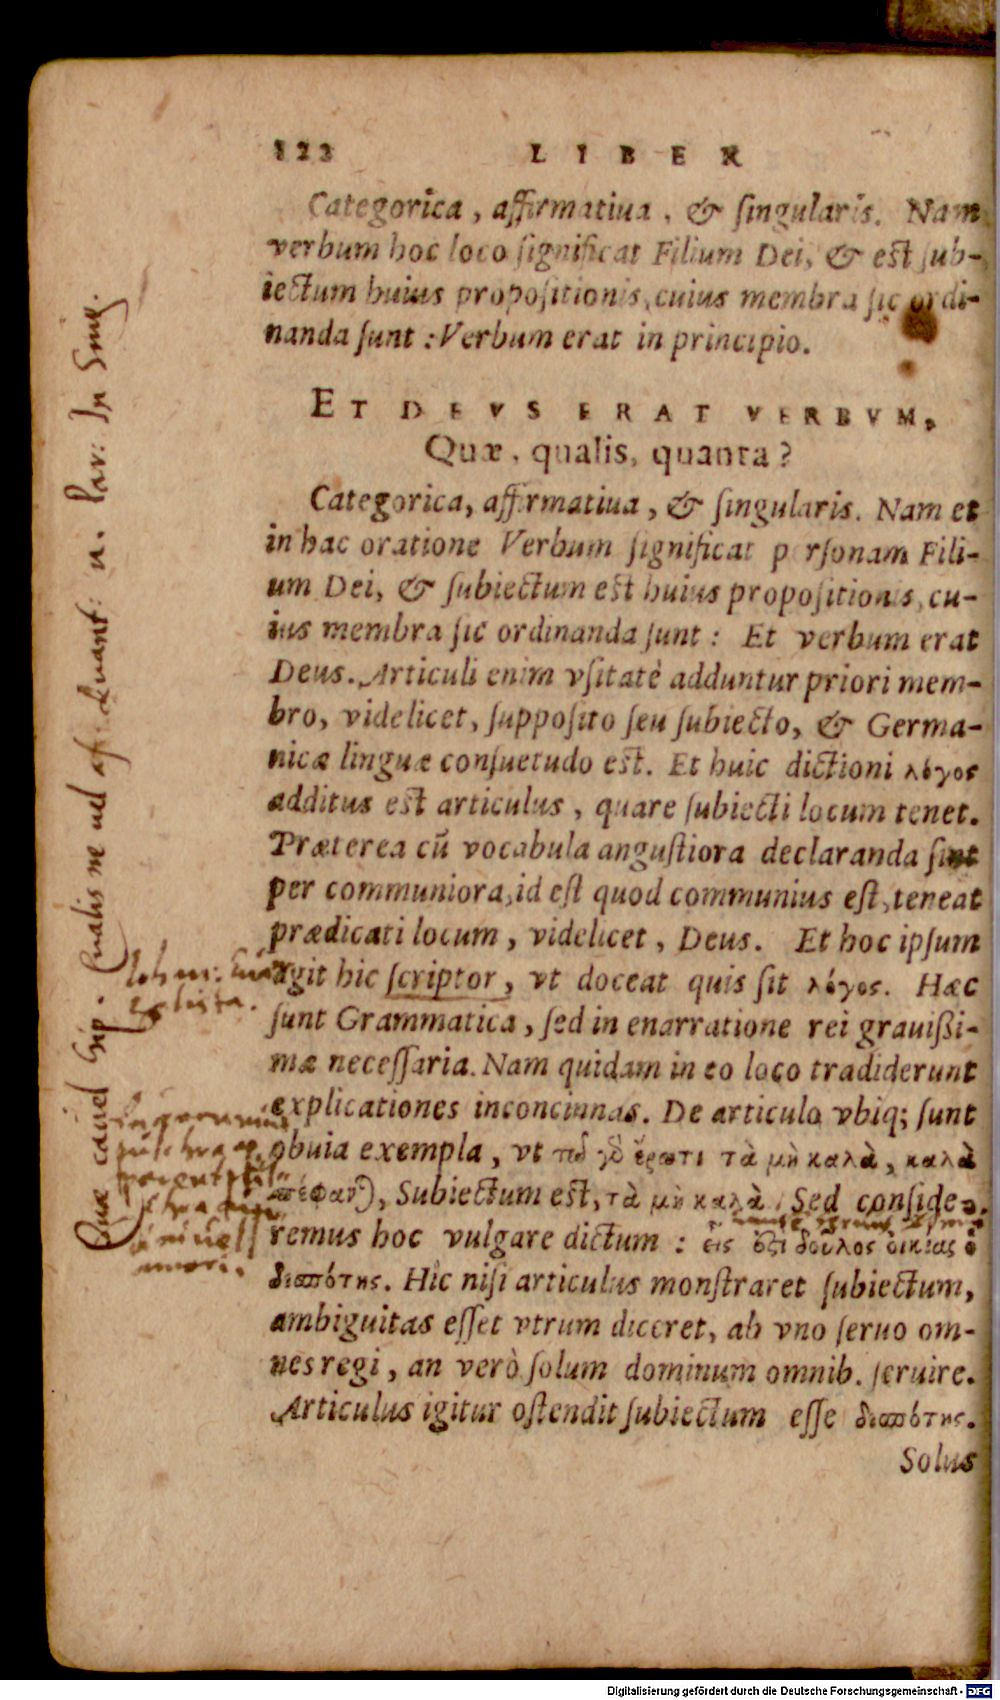 122 LIBER
Categorica, affirmatiua, & ſingularis. Nam
verbum hoc loco ſignificat Filium Dei, & eſt ſub-
iectum huius propoſitionis, cuius membra ſic ordi-
nanda ſunt : Verbum erat in principio.
ET DEVS ERAT VERBVM,
Quæ, qualis, quanta?
Categorica, affirmatiua, & ſingularis. Nam et
in hac oratione Verbum ſignificat p rſonam Fili-
um Dei, & ſubiectum eſt huius propoſitionis, cu-
ius membra ſic ordinanda ſunt : Et verbum erat
Deus. Articuli enim vſitatè adduntur priori mem-
bro, videlicet, ſuppoſito ſeu ſubiecto, & Germa-
nicæ linguæ conſuetudo eſt. Et huic dictioni λόγος
additus eſt articulus, quare ſubiecti locum tenet.
Præterea cũ vocabula anguſtiora declaranda ſint
per communiora, id eſt quod communius eſt, teneat
prædicati locum, videlicet, Deus. Et hoc ipſum
agit hic ſcriptor, vt doceat quis ſit λόγος. Hæc
ſunt Grammatica, ſed in enarratione rei grauißi-
mæ neceſſaria. Nam quidam in eo loco tradiderunt
explicationes inconcinnas. De articulo vbiq; ſunt
obuia exempla, vt τῷ γὸ ἔρωτι τὰ μὴ καλὰ, καλὰ
πέφαν), Subiectum eſt, τὰ μὴ καλὰ. Sed conſide-
remus hoc vulgare dictum : εἰς ἐστι δοῦλος οἰκίας ὁ
δεσπότης. Hic niſi articulus monſtraret ſubiectum,
ambiguitas eſſet vtrum diceret, ab vno ſeruo om-
nes regi, an verò ſolum dominum omnib. ſeruire.
Articulus igitur oſtendit ſubiectum eſſe δεσπότης.
Solus
Quæ ca: uel hip. Qualis ne uel af: Quant: u. par: In Sing.
Digitalisierung gefördert durch die Deutsche Forschungsgemeinschaft - DFG